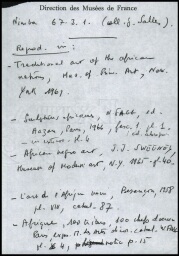 Direction des Musées de France
Nimba 67.3.1. (coll. J. Salles)
Reprod. in :
- Traditional art of the african
nations, Mus. of Prim. Art, New
York 1961.
- Sculptures africaines, W. FAGG, ed.
Hazan, Paris, 1966, fasc. 1, pl. 1
- African negro art, J.J. SWEENEY,
Museum of modern art, N.Y. 1935 - pl. 40,
- L'art d'Afrique noire, Besançon, 1958
pl. VIII, catal. 87.
- Afrique, 100 tribus, 100 chefs d'œuvre
Paris, expo. M. des Arts déco. catal. W. FAGG
pl. 4, notice p. 15